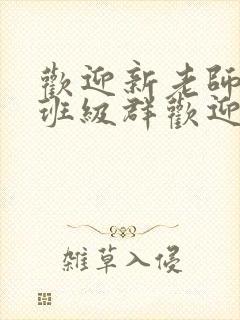 歡迎新老師
班級群歡迎
雜草入侵